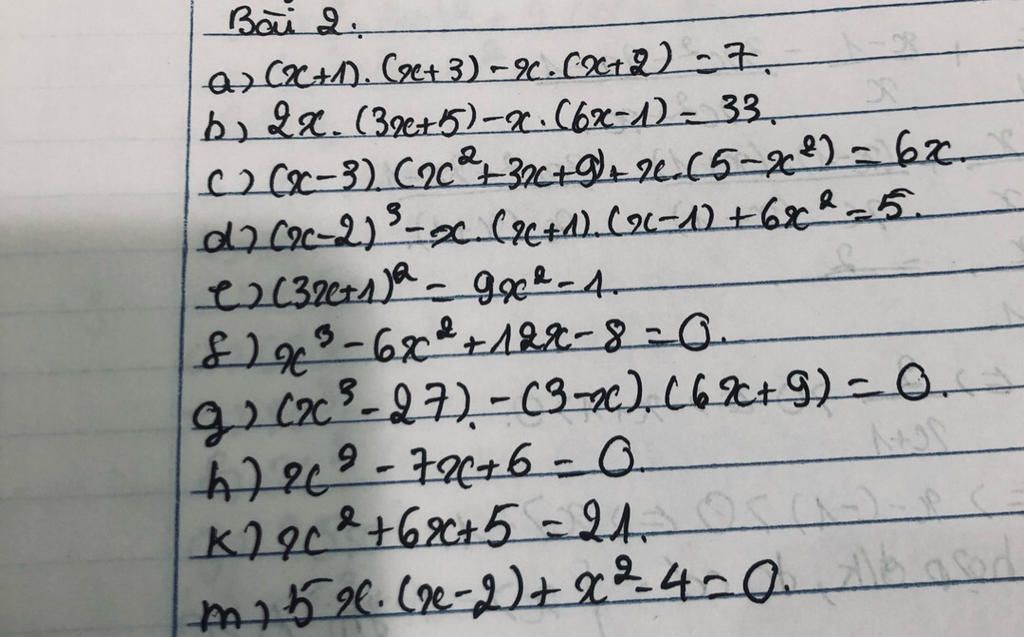 Bài 2:
a) (x+1).(x+3)-x.(x+2) = 7.
b) 2x.(3x+5)-x.(6x-1) = 33.
c) (x-3).(x²+3x+9)+x.(5-x²) = 6x.
d) (x-2)³-x.(x+1).(x-1)+6x² = 5.
e) (3x+1)² = 9x²-1.
f) x³-6x²+12x-8 = 0.
g) (x³-27)-(3-x).(6x+9) = 0.
h) x²-7x+6 = 0.
k) x²+6x+5 = 21.
m) 5x.(x-2)+x²-4 = 0.